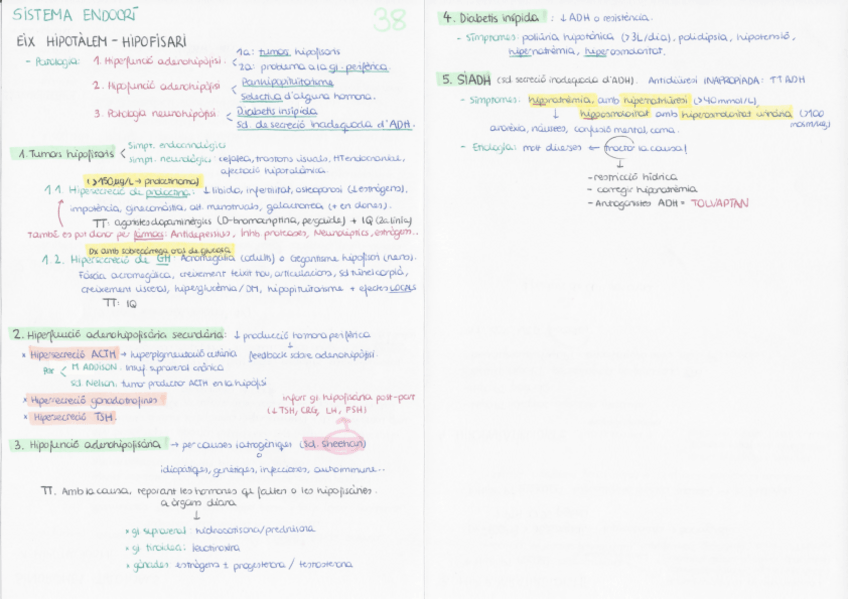 SISTEMA ENDOCRÍ
38
EIX HIPOTÀLEM - HIPOFISARI
- Patologia: 1. Hiperfunció adenohipòfisi
1a: tumor hipofisaris
2a: problema a la gl. perifèrica
2. Hipofunció adenohipòfisi
Panhipopituitarisme
Selectiva d'alguna hormona.
3. Patologia neurohipòfisi
Diabetis insípida
Sd. de secreció inadequada d'ADH.
1. Tumors hipofisaris
Símpt. endocrinològics
símpt. neurològics: cefalea, trastorns visuals, HT endocranial,
afectació hipotalàmica.
(>150µg/L → prolactinoma)
1.1. Hipersecreció de prolactina: ↓ libido, infertilitat, osteoporosi (↓ estrògens),
impotència, ginecomàstia, alt. menstruals, galactorrea (+ en dones).
TT: agonistes dopaminèrgics (D-bromocriptina, pergolide) + IQ (2a línia)
També es pot donar per fàrmacs: Antidepressius, Inhib proteases, Neurolèptics, estrògens...
Dx amb sobrecàrrega oral de glucosa
1.2. Hipersecreció de GH: Acromegàlia (adults) o Gegantisme hipofisari (nens).
Fàscia acromegàlica, creixement teixit tou, articulacions, sd túnel carpià,
creixement visceral, hiperglucèmia / DM, hipopituitarisme + efectes LOCALS
TT: IQ
2. Hiperfunció adenohipofisària secundària: ↓ producció hormona perifèrica
× Hipersecreció ACTH → hiperpigmentació cutània
feedback sobre adenohipòfisi.
Por
M. ADDISON: Insuf suprarenal crònica
Sd. Nelson: tumor productor ACTH en la hipòfisi
× Hipersecreció gonadotrofines
× Hipersecreció TSH.
infart gl hipofisària post-part
(↓ TSH, CRG, LH, FSH)
3. Hipofunció adenohipofisària → per causes iatrogèniques (Sd. Sheehan)
idiopàtiques, genètiques, infeccions, autoimmune...
TT. Amb la causa, reposant les hormones q falten o les hipofisàries.
a òrgans diana
↓
× gl suprarenal: hidrocortisona/prednisona
× gl tiroidea: levotiroxina
× gònades: estrògens ± progesterona / testosterona
4. Diabetis insípida: ↓ ADH o resistència.
- Símptomes: poliúria hipotònica (>3L/dia), polidípsia, hipotensió,
hipernatrèmia, hiperosmolaritat.
5. SIADH (sd secreció inadequada d'ADH). Antidiüresi INAPROPIADA: ↑↑ ADH
- Símptomes: hiponatrèmia, amb hipernatriúresi (>40mmol/L)
↓ hipoosmolaritat amb hiperosmolaritat urinària (>100
mosm/kg)
anorèxia, nàusees, confusió mental, coma.
- Etiologia: molt diverses ← tractar la causa!
↓
- restricció hídrica
- corregir hiponatrèmia
- Antagonistes ADH = TOLVAPTAN